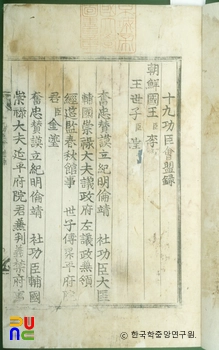 十九功臣會盟錄
朝鮮國王臣李
王世子臣
奮忠贊謨立紀明倫靖 社功臣大匡
輔國崇祿大夫議政府左議政兼領
經筵監春秋館事 世子傅昇平府院
君臣金瑬
奮忠贊謨立紀明倫靖 社功臣輔國
崇祿大夫延平府院君兼判義禁府事
ⓒ 한국학중앙연구원